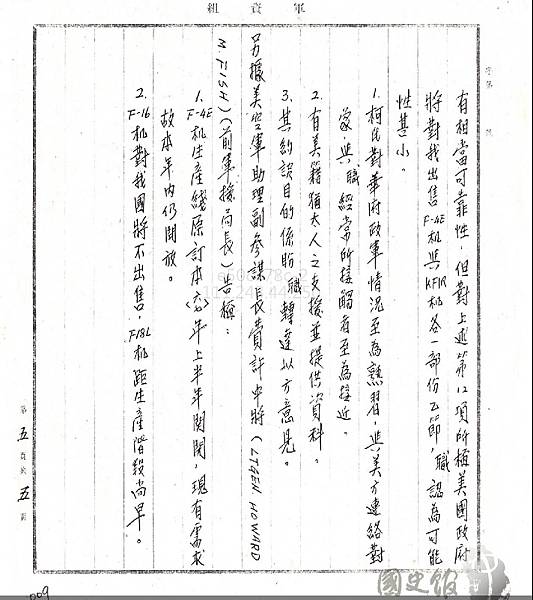 軍資組
字第 號
有相當可靠性，但對上述第12項所極美國政府
將對我出售F-4E机與KFIR机各一部份乙節，職認為可能
性甚小。
1.柯氏對華府政軍情況至為熟習，與美方連絡對
象，與職經常所接觸者至為接近。
2.有美籍猶太人之支援並提供資料。
3.其約談目的係盼職轉達以方意見。
另據美空軍助理副參謀長費許中將（LTGEN HOWARD
M FISH）（前軍援局長）告極：
1.F-4E机生產綫原訂本年上半年関閉，現有需求
故本年内仍開放。
2.F-16机對我國將不出售，F-18L机距生產階段尚早。
第五頁共五頁
009
國史館